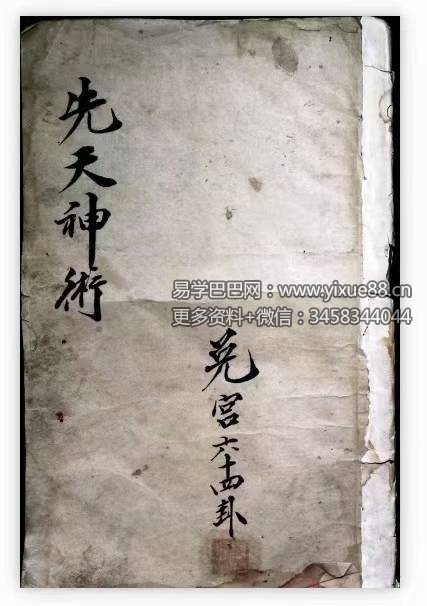 先天神術
易学巴巴网：www.yixue88.cn
更多资料+微信：3458344044
兑宫六十四卦